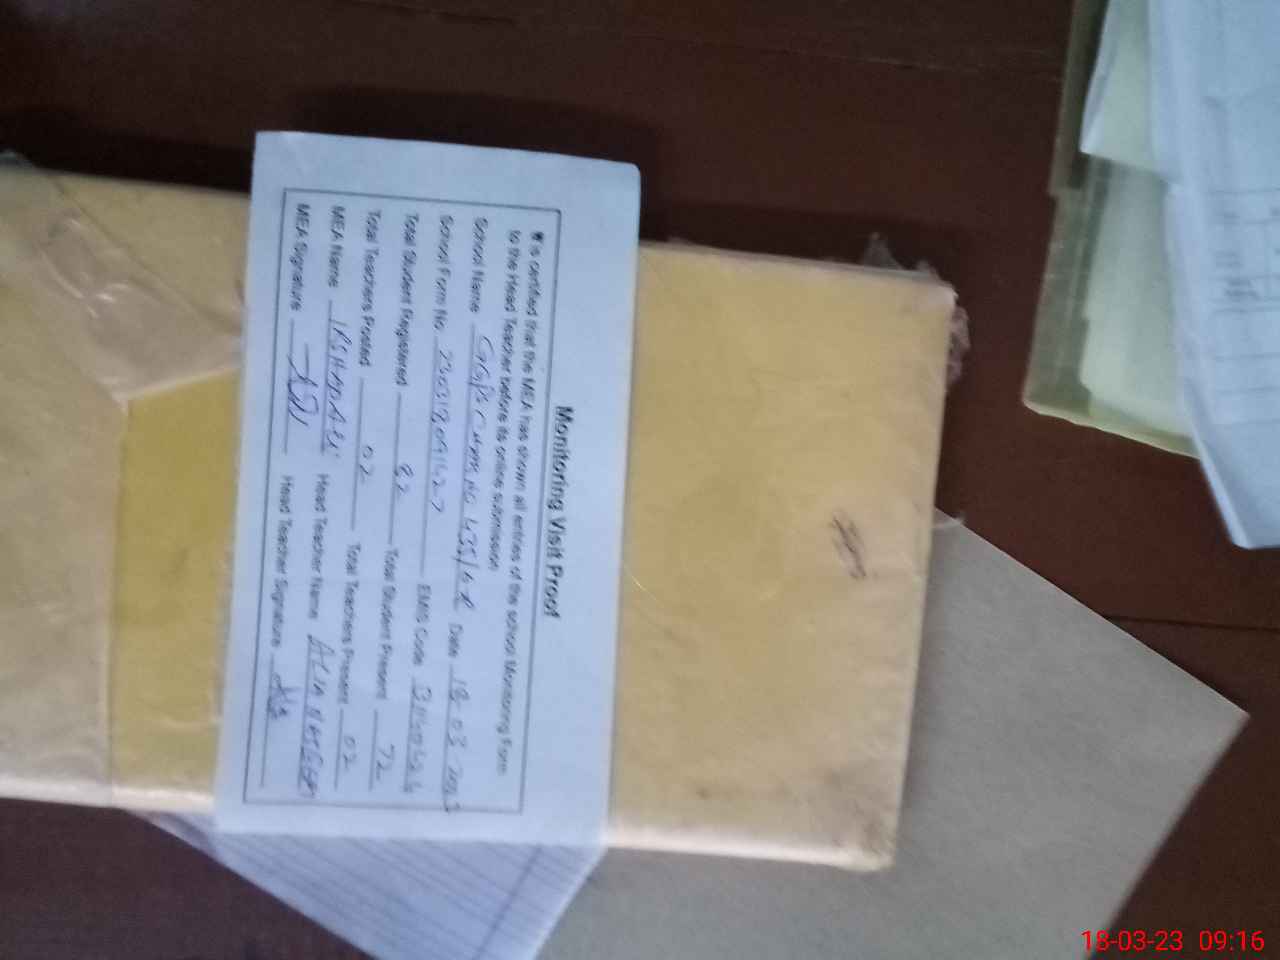 Monitoring Visit Proof
It is certified that the MEA has shown all entries of the school Monitoring Form
to the Head Teacher before its online submission
School Name GGPS CHAK NO 435/ Date 18-03-2023
School Form No. 230318091427 EMIS Code
Total Student Registered 82 Total Student Present 72
Total Teachers Posted 02 Total Teachers Present 02
MEA Name IRSHAD ALI Head Teacher Name
MEA Signature Head Teacher Signature
18-03-23 09:16